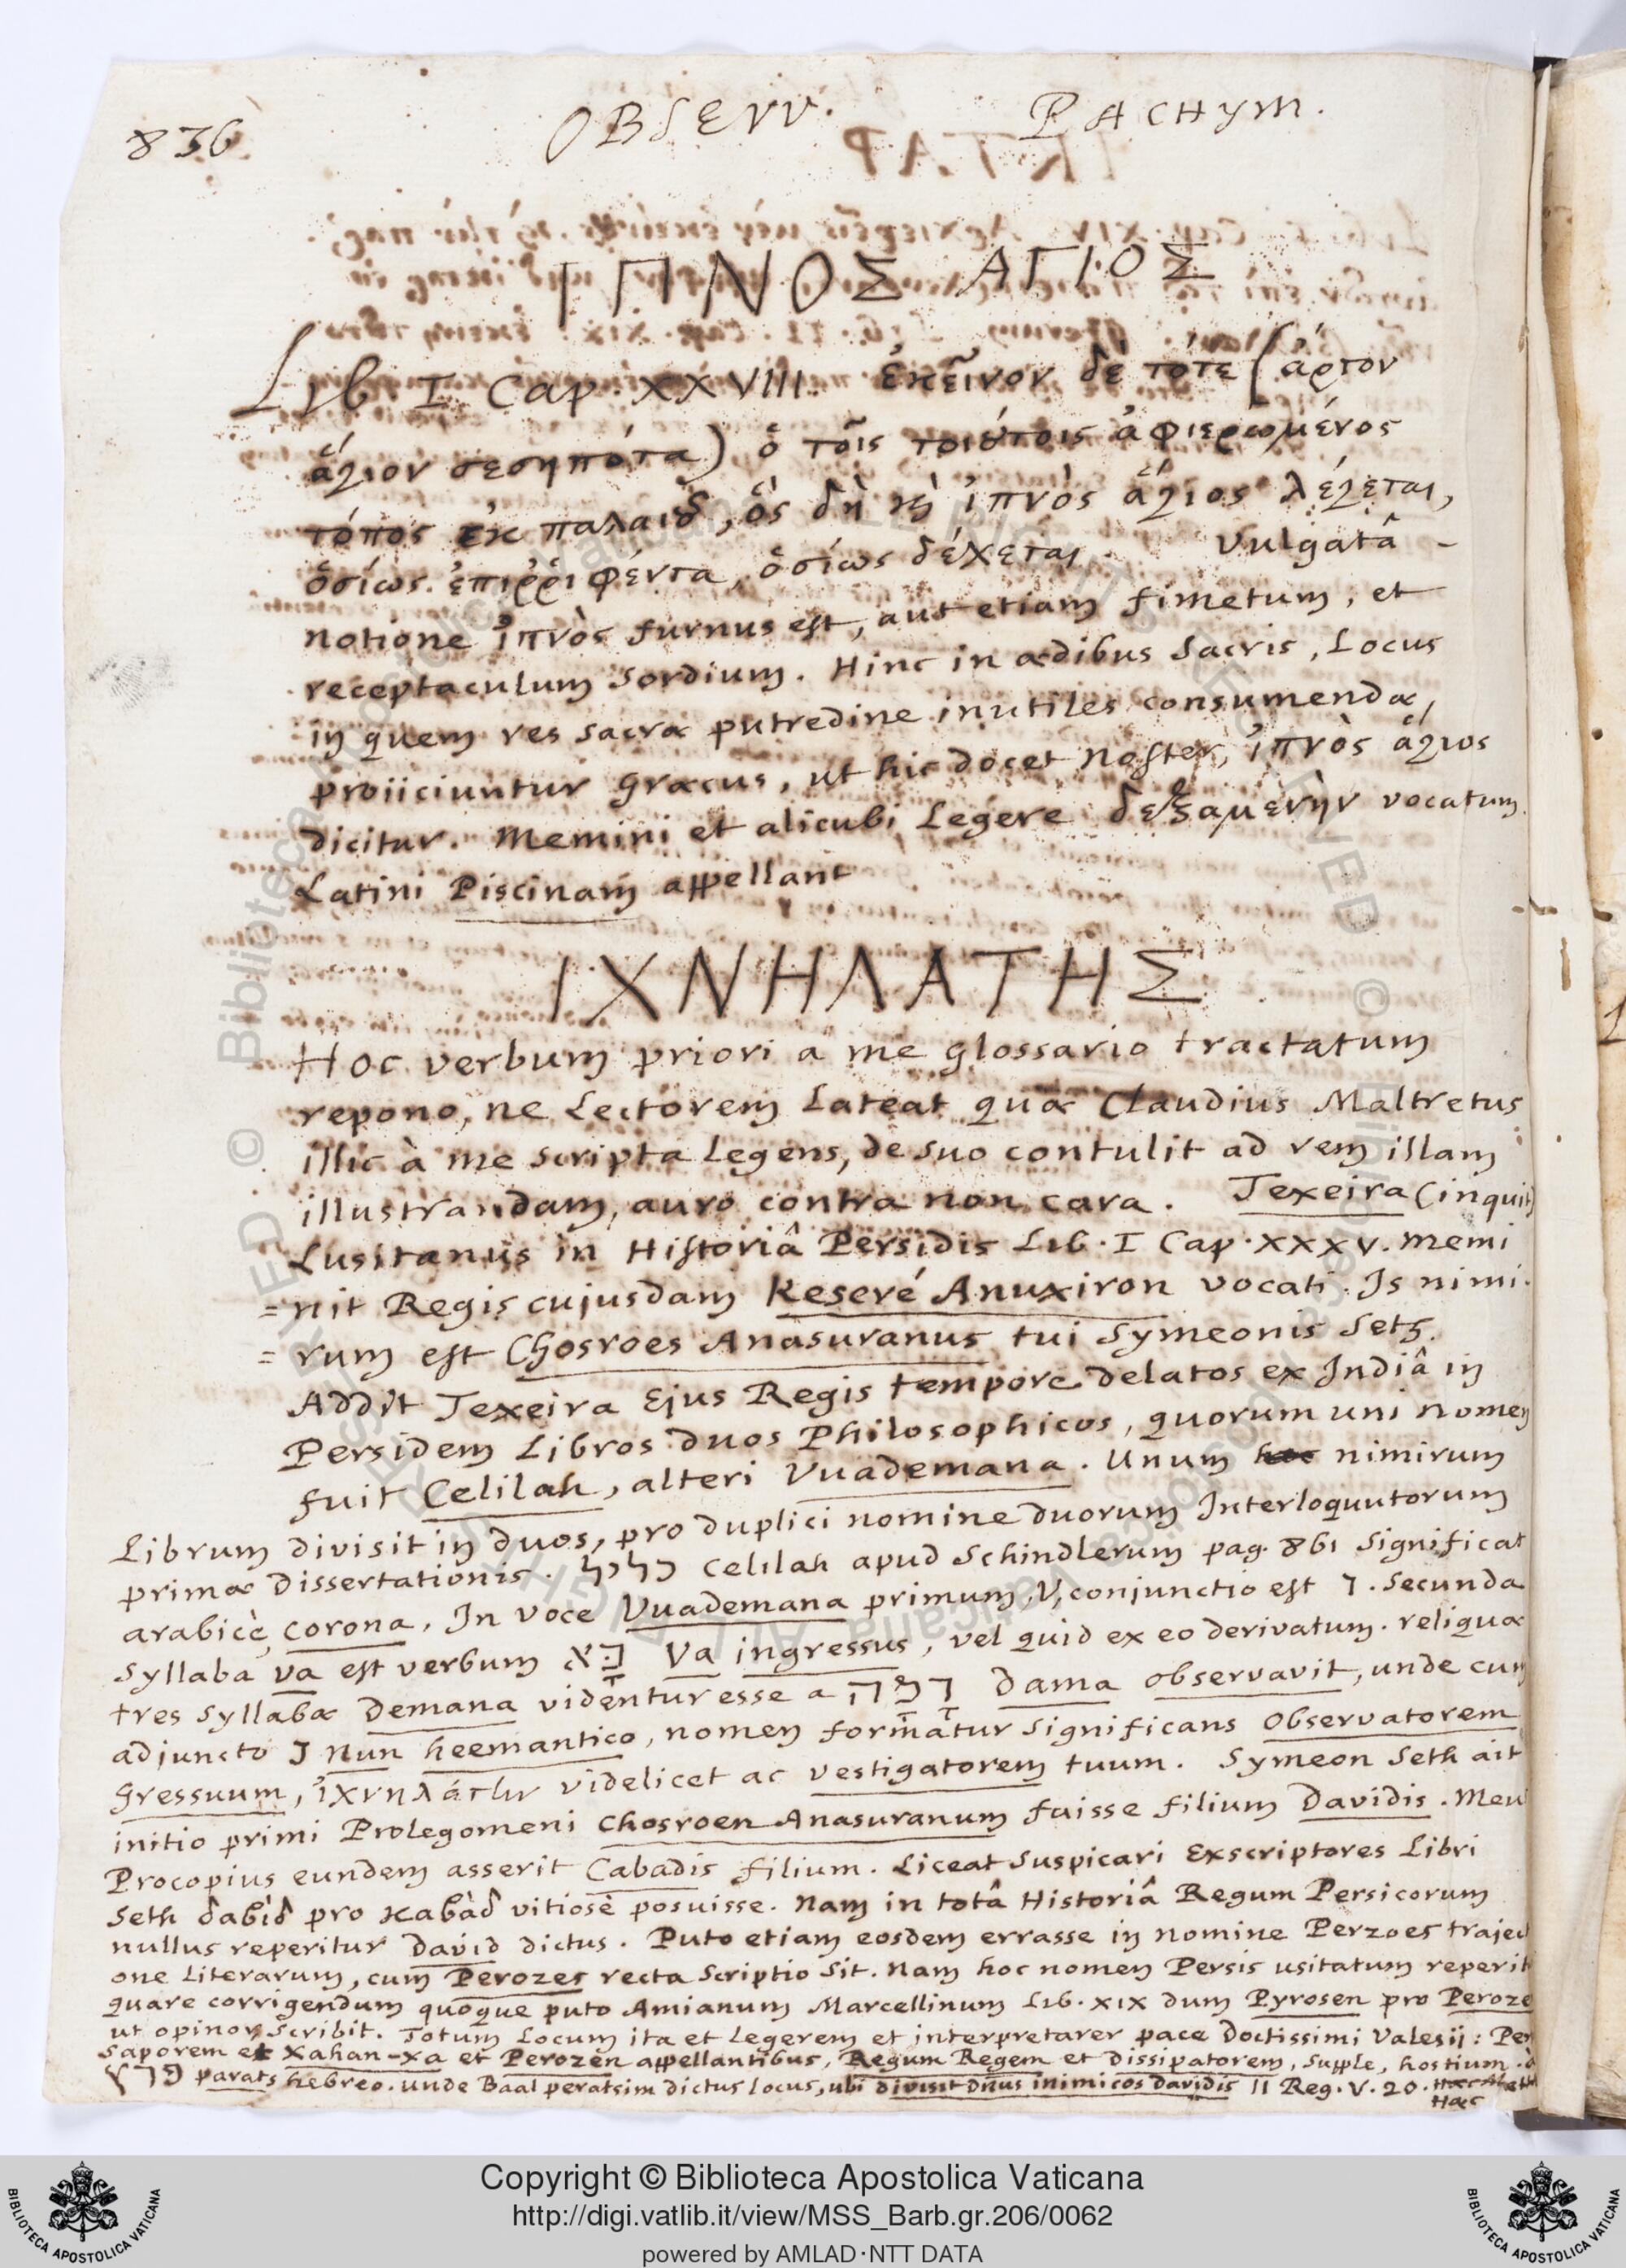 836 OBSERV. PACHYM.
ΙΠΝΟΣ ΑΓΙΟΣ
Lib. I. Cap. XXVIII. ἐκεῖνον δὲ τότε (ἄρτον
ἅγιον σεσηπότα) ὁ τοῖς τοιȣ́τοις ἀφιερωμένος
τόπος ἐκ παλαιȣ͂, ὃς δὴ ϗ̀ ἰπνὸς ἅγιος λέγεται,
ὁσίως ἐπιῤῥιφέντα, ὁσίως δέχεται. Vulgatâ -
notione ἰπνὸς furnus est, aut etiam fimetum, et
receptaculum sordium. Hinc in ædibus sacris, Locus
in quem res sacræ putredine inutiles consumendæ,
proiiciuntur græcus, ut hic docet Noster, ἰπνὸς ἅγιος
dicitur. Memini et alicubi Legere δεξαμενὴν vocatum.
Latini Piscinam appellant
ΙΧΝΗΛΑΤΗΣ
Hoc verbum priori a me glossario tractatum
repono, ne Lectorem Lateat quæ Claudius Maltretus
illic à me scripta Legens, de suo contulit ad rem illam
illustrandam, auro contra non cara. Texeira (inquit)
Lusitanus in Historiâ Persidis Lib. I Cap. XXXV. memi
=nit Regis cujusdam Keseré Anuxiron vocati. Is nimi.
=rum est Chosroes Anasuranus tui Symeonis Seth.
Addit Texeira Ejus Regis tempore delatos ex Indiâ in
Persidem Libros duos Philosophicos, quorum uni nomen
fuit Celilah, alteri Vuademana. Unum nimirum
Librum divisit in duos, pro duplici nomine duorum Interloquutorum
primæ Dissertationis. כלילי Celilah apud Schindlerum pag. 861 significat
arabicè corona. In voce Vuademana primum V, conjunctio est ו. Secunda
Syllaba va est verbum בָּא Va ingressus, vel quid ex eo derivatum. reliquæ
tres Syllabæ Demana videntur esse a דָמָה Dama observavit, unde cum
adjuncto נ Nun heemantico, nomen formatur significans observatorem
gressuum, ἰχνηλάτην videlicet ac vestigatorem tuum. Symeon Seth ait
initio primi Prolegomeni Chosroen Anasuranum fuisse filium Davidis. Meus
Procopius eundem asserit Cabadis filium. Liceat suspicari Exscriptores Libri
Seth δαβὶδ pro καβὰδ vitiosè posuisse. Nam in totâ Historiâ Regum Persicorum
nullus reperitur David dictus. Puto etiam eosdem errasse in nomine Perzoes traject
one Literarum, cum Perozes recta scriptio sit. Nam hoc nomen Persis usitatum reperit
quare corrigendum quoque puto Amianum Marcellinum Lib. XIX dum Pyrosen pro Peroze
ut opinor, scribit. Totum Locum ita et Legerem et interpretarer pace Doctissimi Valesii: Per
Saporem et Xahan-xa et Perozen appellantibus, Regum Regem et dissipatorem, supple, hostium. à
פרץ parats hebreo. unde Baal peratsim dictus locus, ubi divisit Dnus inimicos Davidis II Reg. V. 20.
Hæc
Copyright © Biblioteca Apostolica Vaticana
http://digi.vatlib.it/view/MSS_Barb.gr.206/0062
powered by AMLAD·NTT DATA
BIBLIOTECA APOSTOLICA VATICANA
BIBLIOTECA APOSTOLICA VATICANA